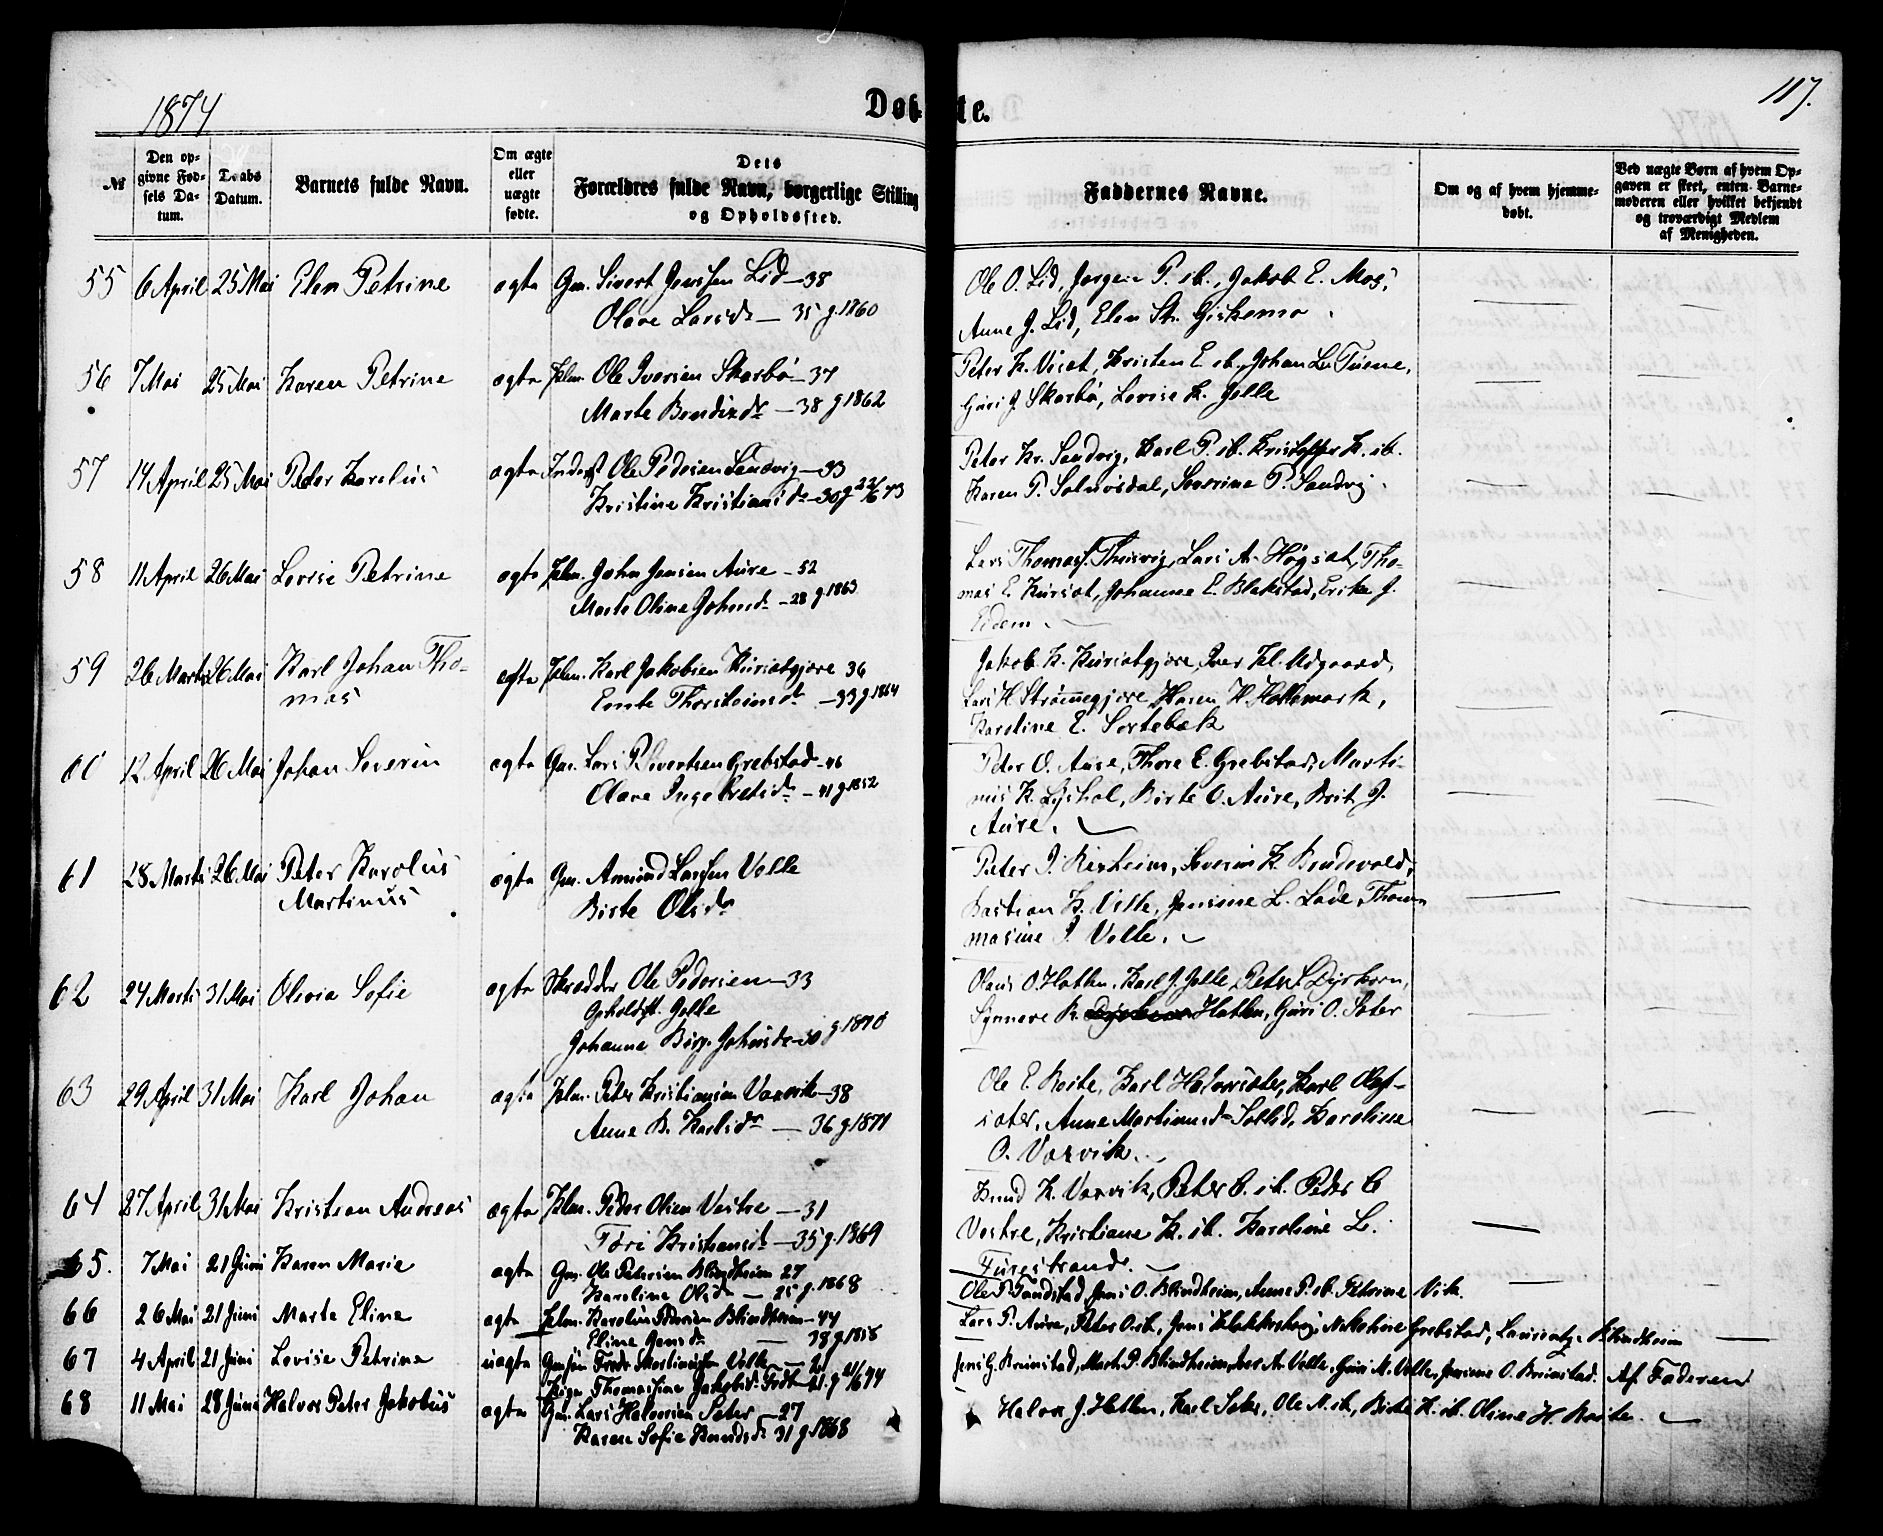 1874
Døbte.
117.
№
Den opgivne Fødsels Datum.
Daabs Datum.
Barnets fulde Navn.
Om ægte eller uægte fødte.
Dets Forældres fulde Navn, borgerlige Stilling og Opholdssted.
Faddernes Navne.
Om og af hvem hjemmedøbt.
Ved uægte Børn af hvem Opgaven er skeet, enten Barnemoderen eller hvilket bekjendt og troværdigt Medlem af Menigheden.
55 6 April 25 Mai Elen Petrine ægte Gm. Sivert Jenssen Lid — 38
Olave Larsdr — 35 g. 1860
Ole O. Lid, Jørgen P. ib., Jakob E. Moe,
Anne J. Lid, Elen St. Giskemo
56 7 Mai 25 Mai Karen Petrine ægte Jelm. Ole Iversen Skarbø — 37
Marte Bendixdr — 38 g 1862
Peter K. Viset, Kristen E. ib., Johan L.
Guri J Skarbø, Lovise K. Gjelle
57 14 April 25 Mai Peter Karolus ægte Inderst Ole Pedersen Sandvig — 33
Kristine Kristiansdr — 30 g 22/6 73
Peter Kr. Sandvig, Karl P. ib. Kristoffer K. ib.
Karen P. Solnørsdal, Severine P. Sandvig.
58 11 April 26 Mai Lovise Petrine ægte Jelm. John Jensen Aure — 52
Marte Oline Johnsdr — 28 g. 1863
Lars Thomass. Lars A. Høgset, Tho-
mas E. Kurset, Johanne E. Blakstad, Erika J.
Eidem.
59 26 Marts 26 Mai Karl Johan Tho-
mas ægte Jelm. Karl Jakobsen Kursetgjøre 36
Ernte Thorsteinsdr — 33 g. 1864
Jakob K. Kursetgjøre, Iver Kl. Udgaard,
Lars H Strømmegjøre, Karen H. Hattemark,
Karoline E. Sortebæk
60 12 April 26 Mai Johan Severin ægte Gm. Lars P. Sivertsen Grebstad — 46
Olave Ingebretsdr — 41 g. 1852
Peder O. Aure, Thore E. Grebstad, Marti-
nus K. Lyshol, Birte O. Aure, Brit J.
Aure.
61 28 Marts 26 Mai Peter Karolus
Martinus ægte Gm. Amund Larssen Velle
Birte Olsdr
Peter J. Rexheim, Severin K. Brudevold,
Bastian K. Velle, Jensine L. Lade, Thom-
masine P. Velle.
62 24 Marts 31 Mai Olivia Sofie ægte Skrædder Ole Pedersen — 33
Opholdst. Gjelle
Johanne Birg. Johnsdr — 30 g 1870
Olaus O. Hatlen, Karl J. Gjelle, Peter S. Dyrkorn,
Synnøve K. Hatlen, Guri O. Sæter
63 29 April 31 Mai Karl Johan ægte Jelm. Peter Kristiansen Vaxvik — 38
Anne B. Karlsdr — 36 g. 1871
Ole E. Roite, Karl Halvorsæter, Karl Olaf-
sæter, Anne Martinusdr Sollid, Karoline
O. Vaxvik.
64 27 April 31 Mai Kristian Andreas ægte Jelm. Peder Olsen Vestre — 31
Tøri Kristiansdr — 35 g. 1869
Knud K. Vaxvik, Peter O. ib. Peder C
Vestre, Kristiane K. ib. Karoline L.
Furestrand.
65. 7 Mai 21 Juni Karen Marie ægte Gm. Ole Petersen Blindheim 27
Karoline Olsdr — 25 g. 1868
Ole P. Tandstad, Jens O. Blindheim, Anne P. ib. Petrine Vik.
66 26 Mai 21 Juni Marte Eline ægte Jelm. Karolus Pedersen Blindheim — 44
Eline Jensdr — 38 g. 1858
Lars P. Aure, Peter O. ib., Jens Grebstad, Blindheim
67 4 April 21 Juni Lovise Petrine uægte Velle
Pige Thomasine
Jens G. Brunstad, Mart. P. Blindheim, Iver A. Velle, Guri M. Velle, Jensine O. Brunstad. Af Faderen
68 11 Mai 28 Juni Halvor Peter Jakobus ægte Gm. Lars Halvorsen Sæter — 27
Karen Sofie Knudsdr 31 g. 1868
Halvor J. Hatlen, Karl Sæter, Ole N. ib, Birte K. ib. Oline H. Roite.